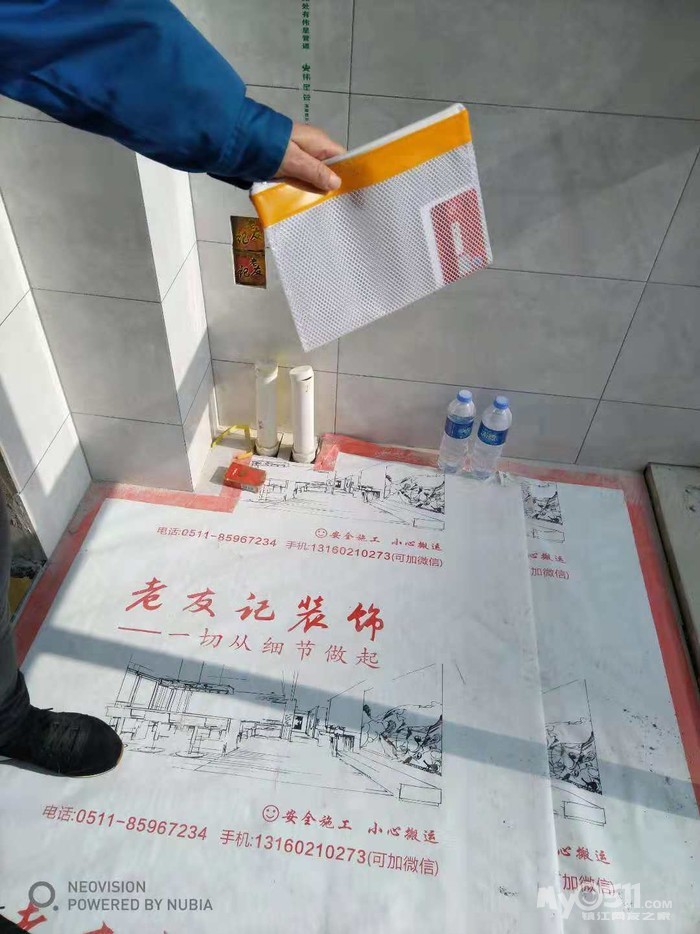 处有伟星管道
伟星管
记友
记友
电话:0511-85967234 手机:13160210273(可加微信)
安全施工 小心搬运
加微信)
老友记装饰
——一切从细节做起
安全施工 小心搬运
电话:0511-85967234 手机:13160210273(可加微信)
小心搬运
加微信)
NEOVISION
POWERED BY NUBIA
My0511.COM
镇江网友之家